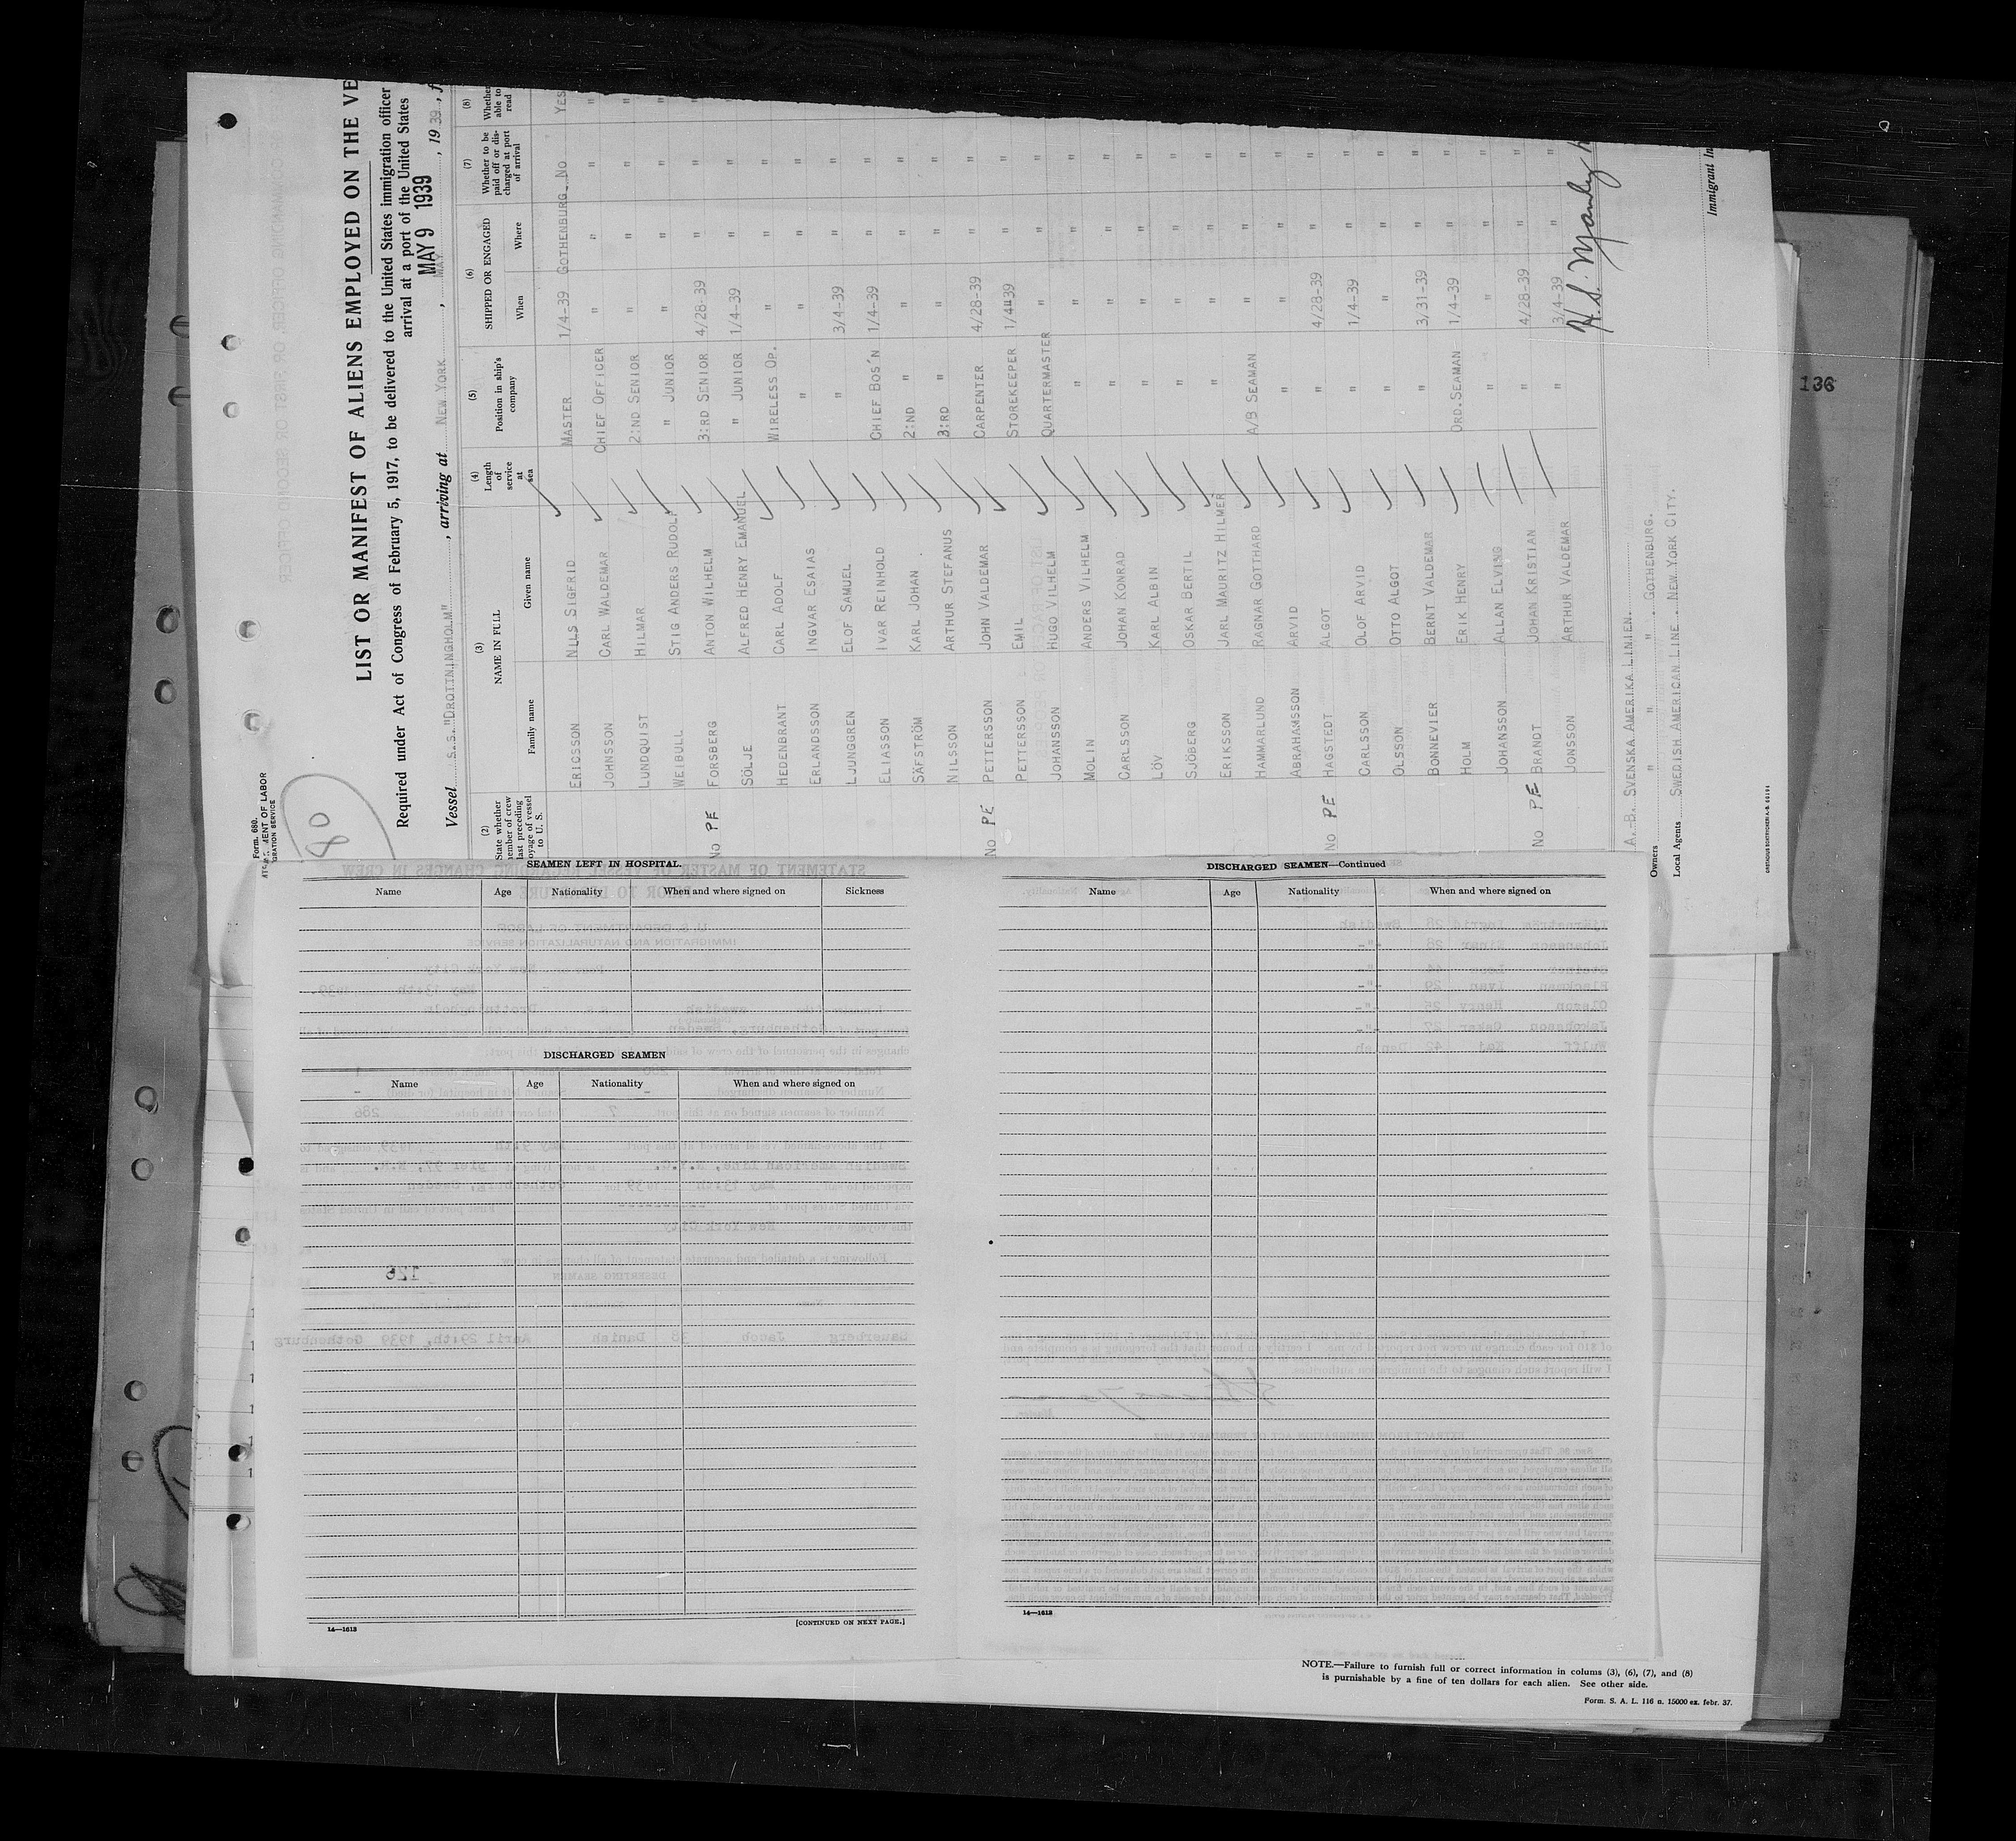 Form. 680.
MENT OF LABOR
GRATION SERVICE
80
LIST OR MANIFEST OF ALIENS EMPLOYED ON THE VE
Required under Act of Congress of February 5, 1917, to be delivered to the United States immigration officer
arrival at a port of the United States
MAY 9 1939
Vessel S.S. "DROTTNINGHOLM", arriving at NEW YORK, MAY, 1939, f
(2) State whether member of crew last preceding voyage of vessel to U. S.
(3) NAME IN FULL
Family name Given name
(4) Length of service at sea
(5) Position in ship's company
(6) SHIPPED OR ENGAGED
When Where
(7) Whether to be paid off or discharged at port of arrival
(8) Whether able to read
ERICSSON NILS SIGFRID MASTER 1/4-39 GOTHENBURG. NO YES
JOHNSSON CARL WALDEMAR CHIEF OFFICER " " " "
LUNDQUIST HILMAR 2:ND SENIOR " " " "
WEIBULL STIG ANDERS RUDOLF " JUNIOR " " " "
NO PE FORSBERG ANTON WILHELM 3:RD SENIOR 4/28-39 " " "
SÖLJE ALFRED HENRY EMANUEL " JUNIOR 1/4-39 " "
HEDENBRANT CARL ADOLF WIRELESS OP. " " "
ERLANDSSON INGVAR ESAIAS " " " "
LJUNGGREN ELOF SAMUEL " 3/4-39 " "
ELIASSON IVAR REINHOLD CHIEF BOS'N 1/4-39 " "
SÄFSTRÖM KARL JOHAN 2:ND " " " "
NILSSON ARTHUR STEFANUS 3:RD " " " "
NO PE PETTERSSON JOHN VALDEMAR CARPENTER 4/28-39 " "
PETTERSSON EMIL STOREKEEPER 1/4-39 " "
JOHANSSON HUGO VILHELM QUARTERMASTER " " "
MOLIN ANDERS VILHELM " " " "
CARLSSON JOHAN KONRAD " " " "
LÖV KARL ALBIN " " " "
SJÖBERG OSKAR BERTIL " " " "
ERIKSSON JARL MAURITZ HILMER " " " "
HAMMARLUND RAGNAR GOTTHARD A/B SEAMAN " " "
ABRAHAMSSON ARVID " " " "
NO PE HAGSTEDT ALGOT " 4/28-39 " "
CARLSSON OLOF ARVID " 1/4-39 " "
OLSSON OTTO ALGOT " " " "
BONNEVIER BERNT VALDEMAR " 3/31-39 " "
HOLM ERIK HENRY ORD.SEAMAN 1/4-39 " "
JOHANSSON ALLAN ELVING " " " "
NO PE BRANDT JOHAN KRISTIAN " 4/28-39 " "
JONSSON ARTHUR VALDEMAR " 3/4-39 " "
H. S. Manley
Immigrant In
Owners A.-B. SVENSKA AMERIKA LINIEN.
" " " . GOTHENBURG.
Local Agents SWEDISH AMERICAN LINE. NEW YORK CITY.
136
SEAMEN LEFT IN HOSPITAL.
Name Age Nationality When and where signed on Sickness
DISCHARGED SEAMEN
Name Age Nationality When and where signed on
[CONTINUED ON NEXT PAGE.]
14—1613
DISCHARGED SEAMEN—Continued
Name Age Nationality When and where signed on
14—1613
NOTE.—Failure to furnish full or correct information in colums (3), (6), (7), and (8)
is purnishable by a fine of ten dollars for each alien. See other side.
Form. S. A. L. 116 n. 15000 ex. febr. 37.